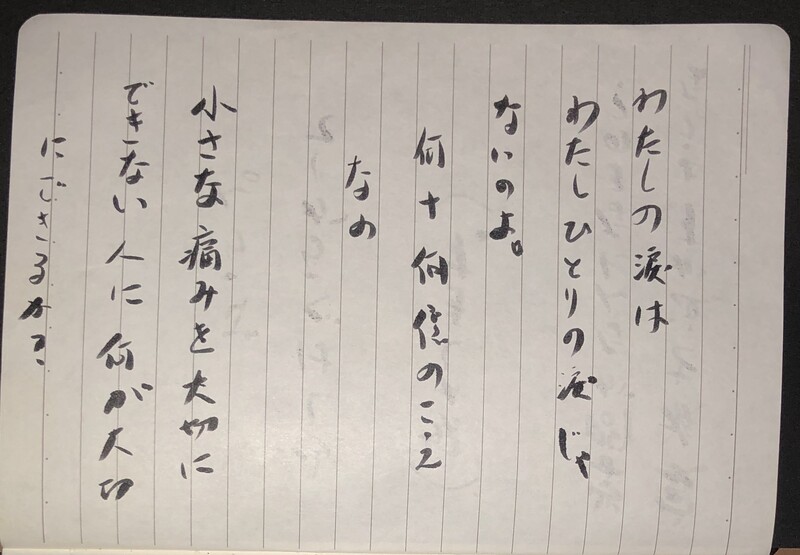 わたしの涙は
わたしひとりの涙じゃ
ないのよ。
何十何億のこえ
なの
小さな痛みを大切に
できない人に何が大切
にできるかる